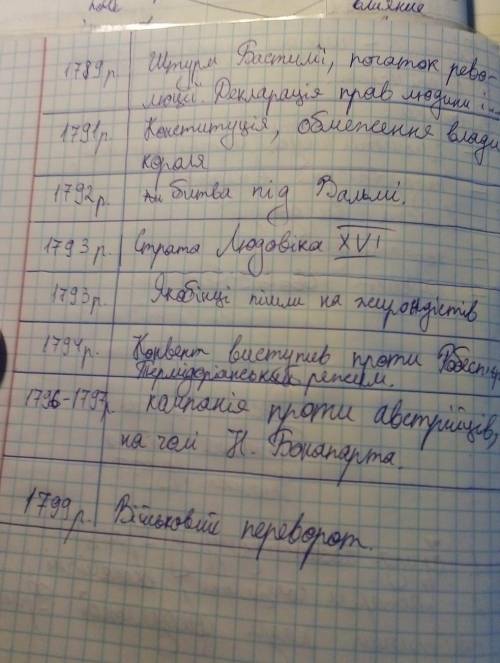 влияние
1789р. Штурм Бастилії, початок рево-
люції. Декларація прав людини і...
1791р. Конституція, обмеження влади
короля
1792р. битва під Вальмі.
1793р. Страта Людовіка XVI
1793р. Якобінці пішли на жирондистів
1794р. Конвент виступив проти Робесп
Термідоріанський режим.
1796-1797р. кампанія проти австрійців,
на чолі Н. Бонапарта.
1799р. Військовий переворот.